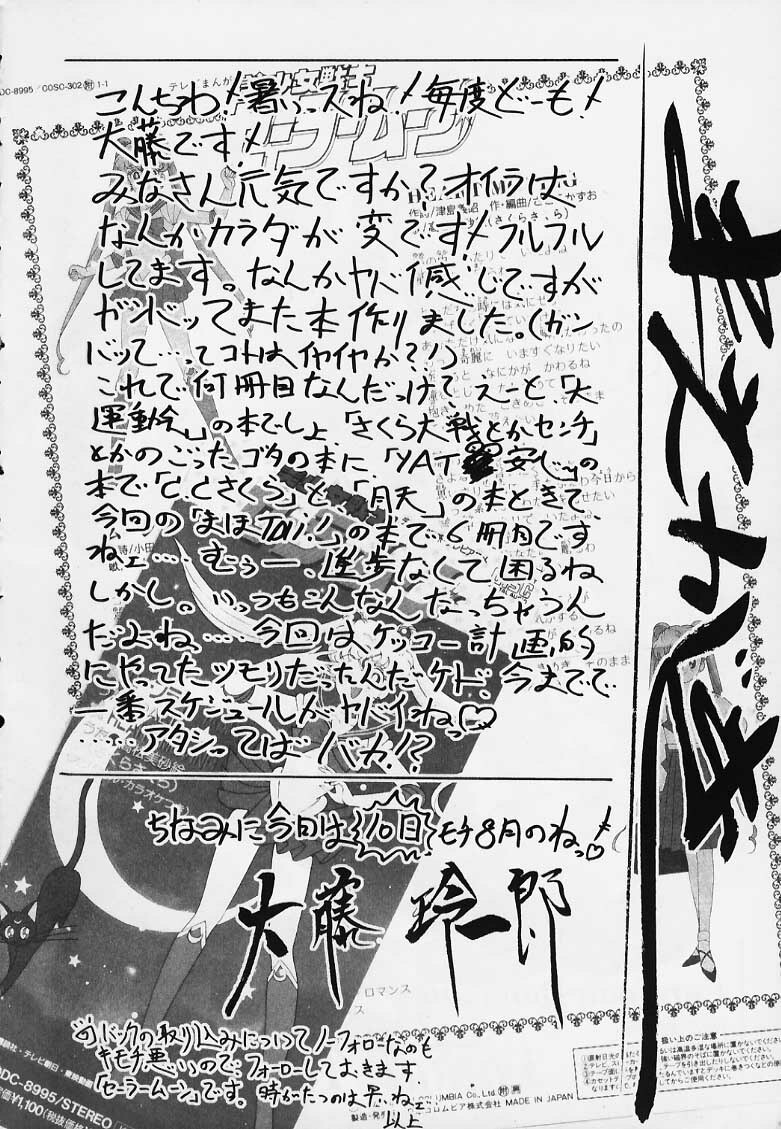 まえがき
DC-8995／COSC-302 附 1-1
テレビまんが
美少女戦士
セーラームーン
こんちわ！暑いっスね！毎度どーも！
大藤です！
みなさん元気ですか？オイラは
なんかカラダが変です！フルフル
してます。なんかヤバイ感じですが
ガンバッてまた本作りました。（ガン
バッて…ってコトはイヤイヤか？！）
これで何冊目なんだっけ、えーと、「大
運動会」の本でしょ、「さくら大戦とかセンチ」
とかのごったゴタの本に、「YAT安じょ」の
本で「CCさくら」と、「月天」の本ときて、
今回の「まほTai!」の本で6冊目です
ねェ…。むぅー、進歩なくて困るね
しかし。いっつもこんなんなっちゃうん
だよね、……今回はケッコー計画的
にやってたツモリだったんだケド、今までで
一番スケジュールがヤバイねっ♡
……アタシってばバカ！？
ちなみに今日は10日 モチ8月のねっ♡
大藤 玲一郎
バックの取り込みについてノーフォローなのも
キモチ悪いので、フォローしておきます
「セーラームーン」です。時がたつのは早いねェ…
以上
ロマンス
講談社・テレビ朝日・東映動画
DC-8995/STEREO
¥1,100（税抜価格
COLUMBIA Co., Ltd 附 興
コロムビア株式会社 MADE IN JAPAN
扱い上のご注意